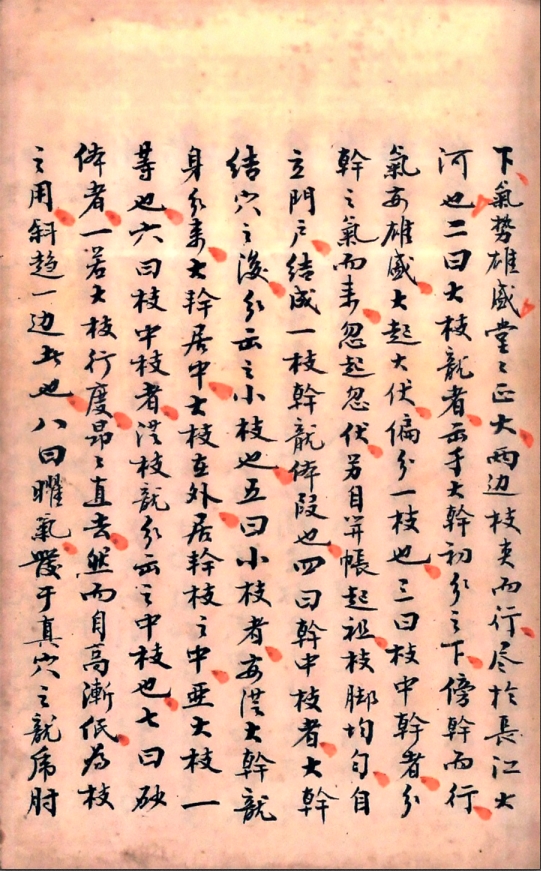 下氣勢雄盛堂〻正大两边枝夹而行尽扵長江大
河也二曰大枝龍者出乎大幹初分之下傍幹而行
氣要雄盛大起大伏偏分一枝也三曰枝中幹者分
幹之氣而来忽起忽伏另自开帳起祖枝脚均匀自
立門户結成一枝幹龍体段也四曰幹中枝者大幹
結穴之後分出之小枝也五曰小枝者要從大幹龍
身分来大幹居中大枝在外居幹枝之中亜大枝一
等也六曰枝中枝者從枝龍分出之中枝也七曰砂
体者一若大枝行度昂〻直去然而自高漸低為枝
之用斜趋一边也八曰曜氣發于真穴之龍虎肘